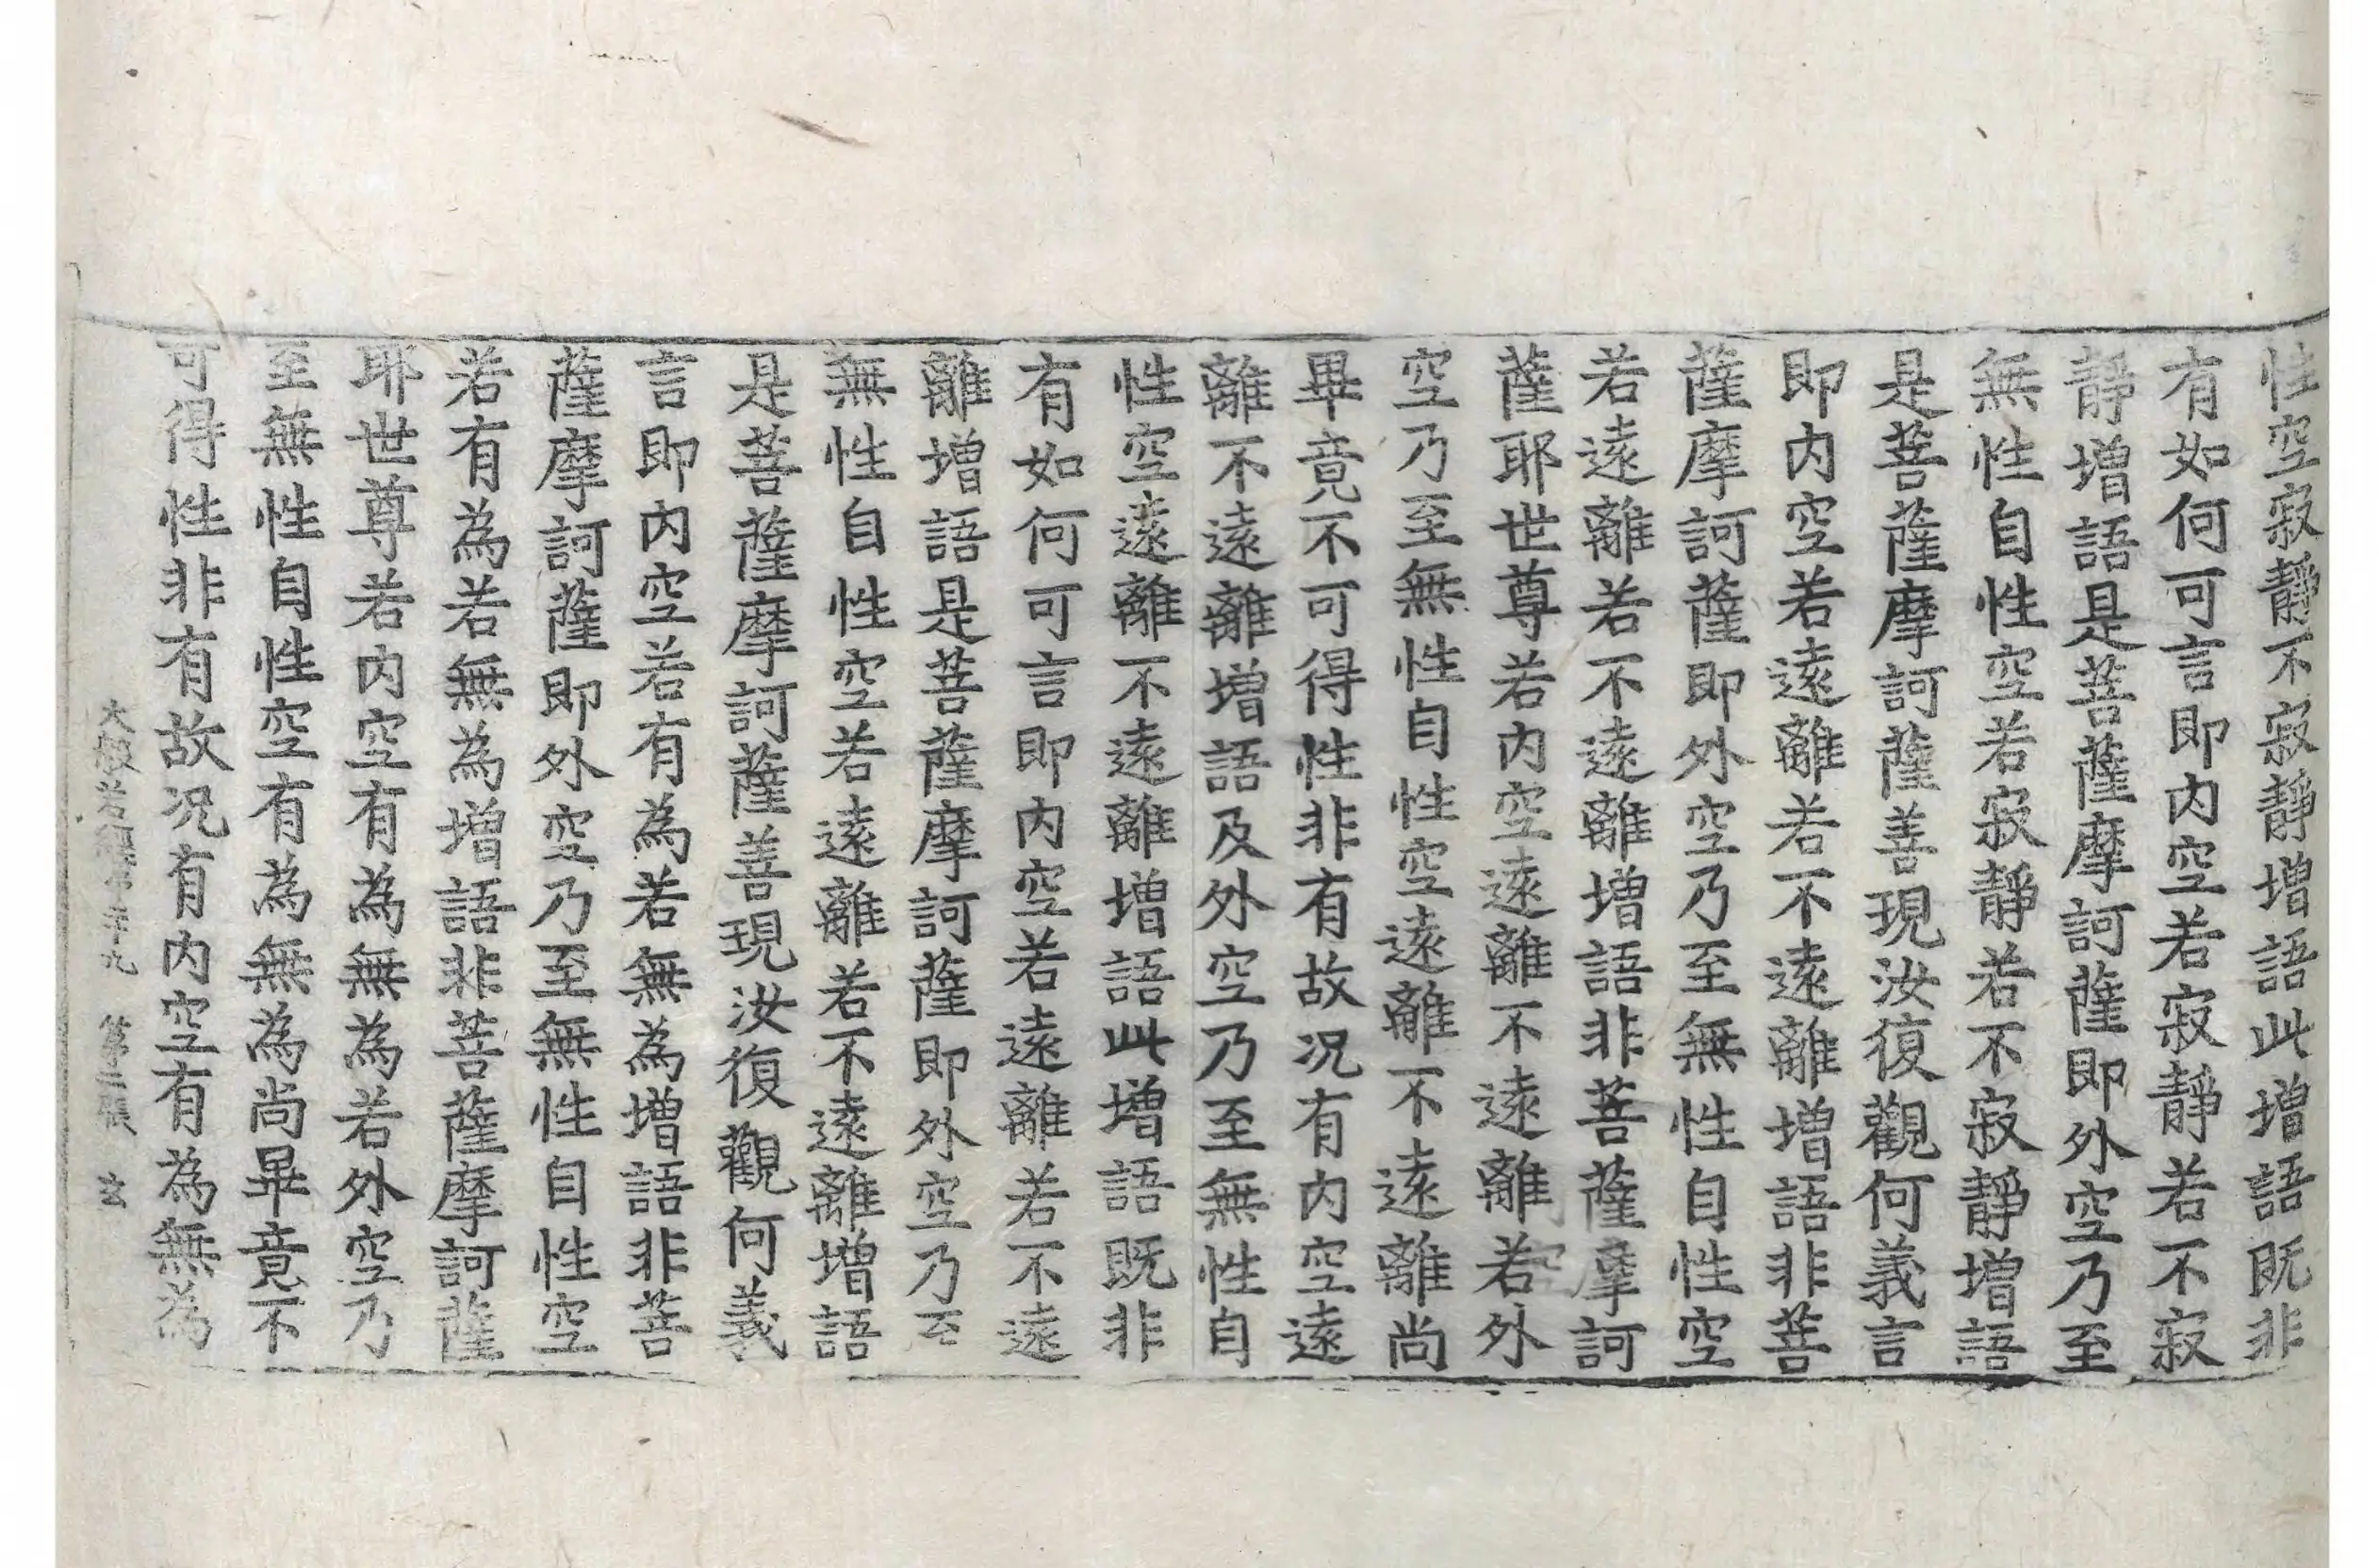 性空寂靜不寂靜增語此增語既非
有如何可言即内空若寂靜若不寂
靜增語是菩薩摩訶薩即外空乃至
無性自性空若寂靜若不寂靜增語
是菩薩摩訶薩善現汝復觀何義言
即内空若遠離若不遠離增語非菩
薩摩訶薩即外空乃至無性自性空
若遠離若不遠離增語非菩薩摩訶
薩耶世尊若内空遠離不遠離若外
空乃至無性自性空遠離不遠離尚
畢竟不可得性非有故况有内空遠
離不遠離增語及外空乃至無性自
性空遠離不遠離增語此增語既非
有如何可言即内空若遠離若不遠
離增語是菩薩摩訶薩即外空乃至
無性自性空若遠離若不遠離增語
是菩薩摩訶薩善現汝復觀何義
言即内空若有為若無為增語非菩
薩摩訶薩即外空乃至無性自性空
若有為若無為增語非菩薩摩訶薩
耶世尊若内空有為無為若外空乃
至無性自性空有為無為尚畢竟不
可得性非有故况有内空有為無為
大般若經 第二張 玄